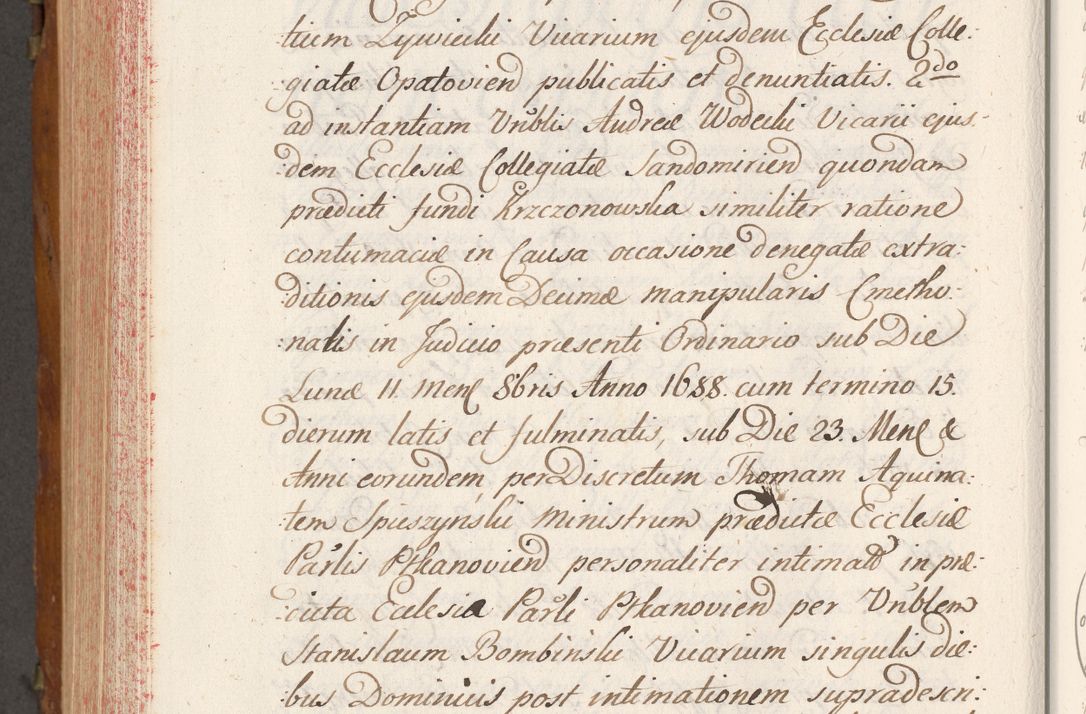 tium Zywicki Vicarium ejusdem Ecclesiæ Colle:
giatæ Opatovien publicatis et denuntiatis. 2do
ad instantiam Vnblis Andreæ Wodecki Vicarii ejus:
dem Ecclesiæ Collegiatæ Sandomirien quondam
prædicti fundi Krzczonowska similiter ratione
contumaciæ in Causa occasione denegatæ extra:
ditionis ejusdem Decimæ manipularis Cmetho:
nalis in Judicio præsenti Ordinario sub Die
Lunæ 11. Mens 8bris Anno 1688. cum termino 15.
dierum latis et fulminatis, sub Die 23. Mens &
Anni eorundem, per Discretum Thomam Aquina:
tem Spieszynski Ministrum prædictæ Ecclesiæ
Parlis Ptkanovien personaliter intimat in præ:
:cicta Ecclesia Parli Ptkanovien per Vnblem
Stanislaum Bombinski Vicarium singulis die:
:bus Dominicis post intimationem supradescri: